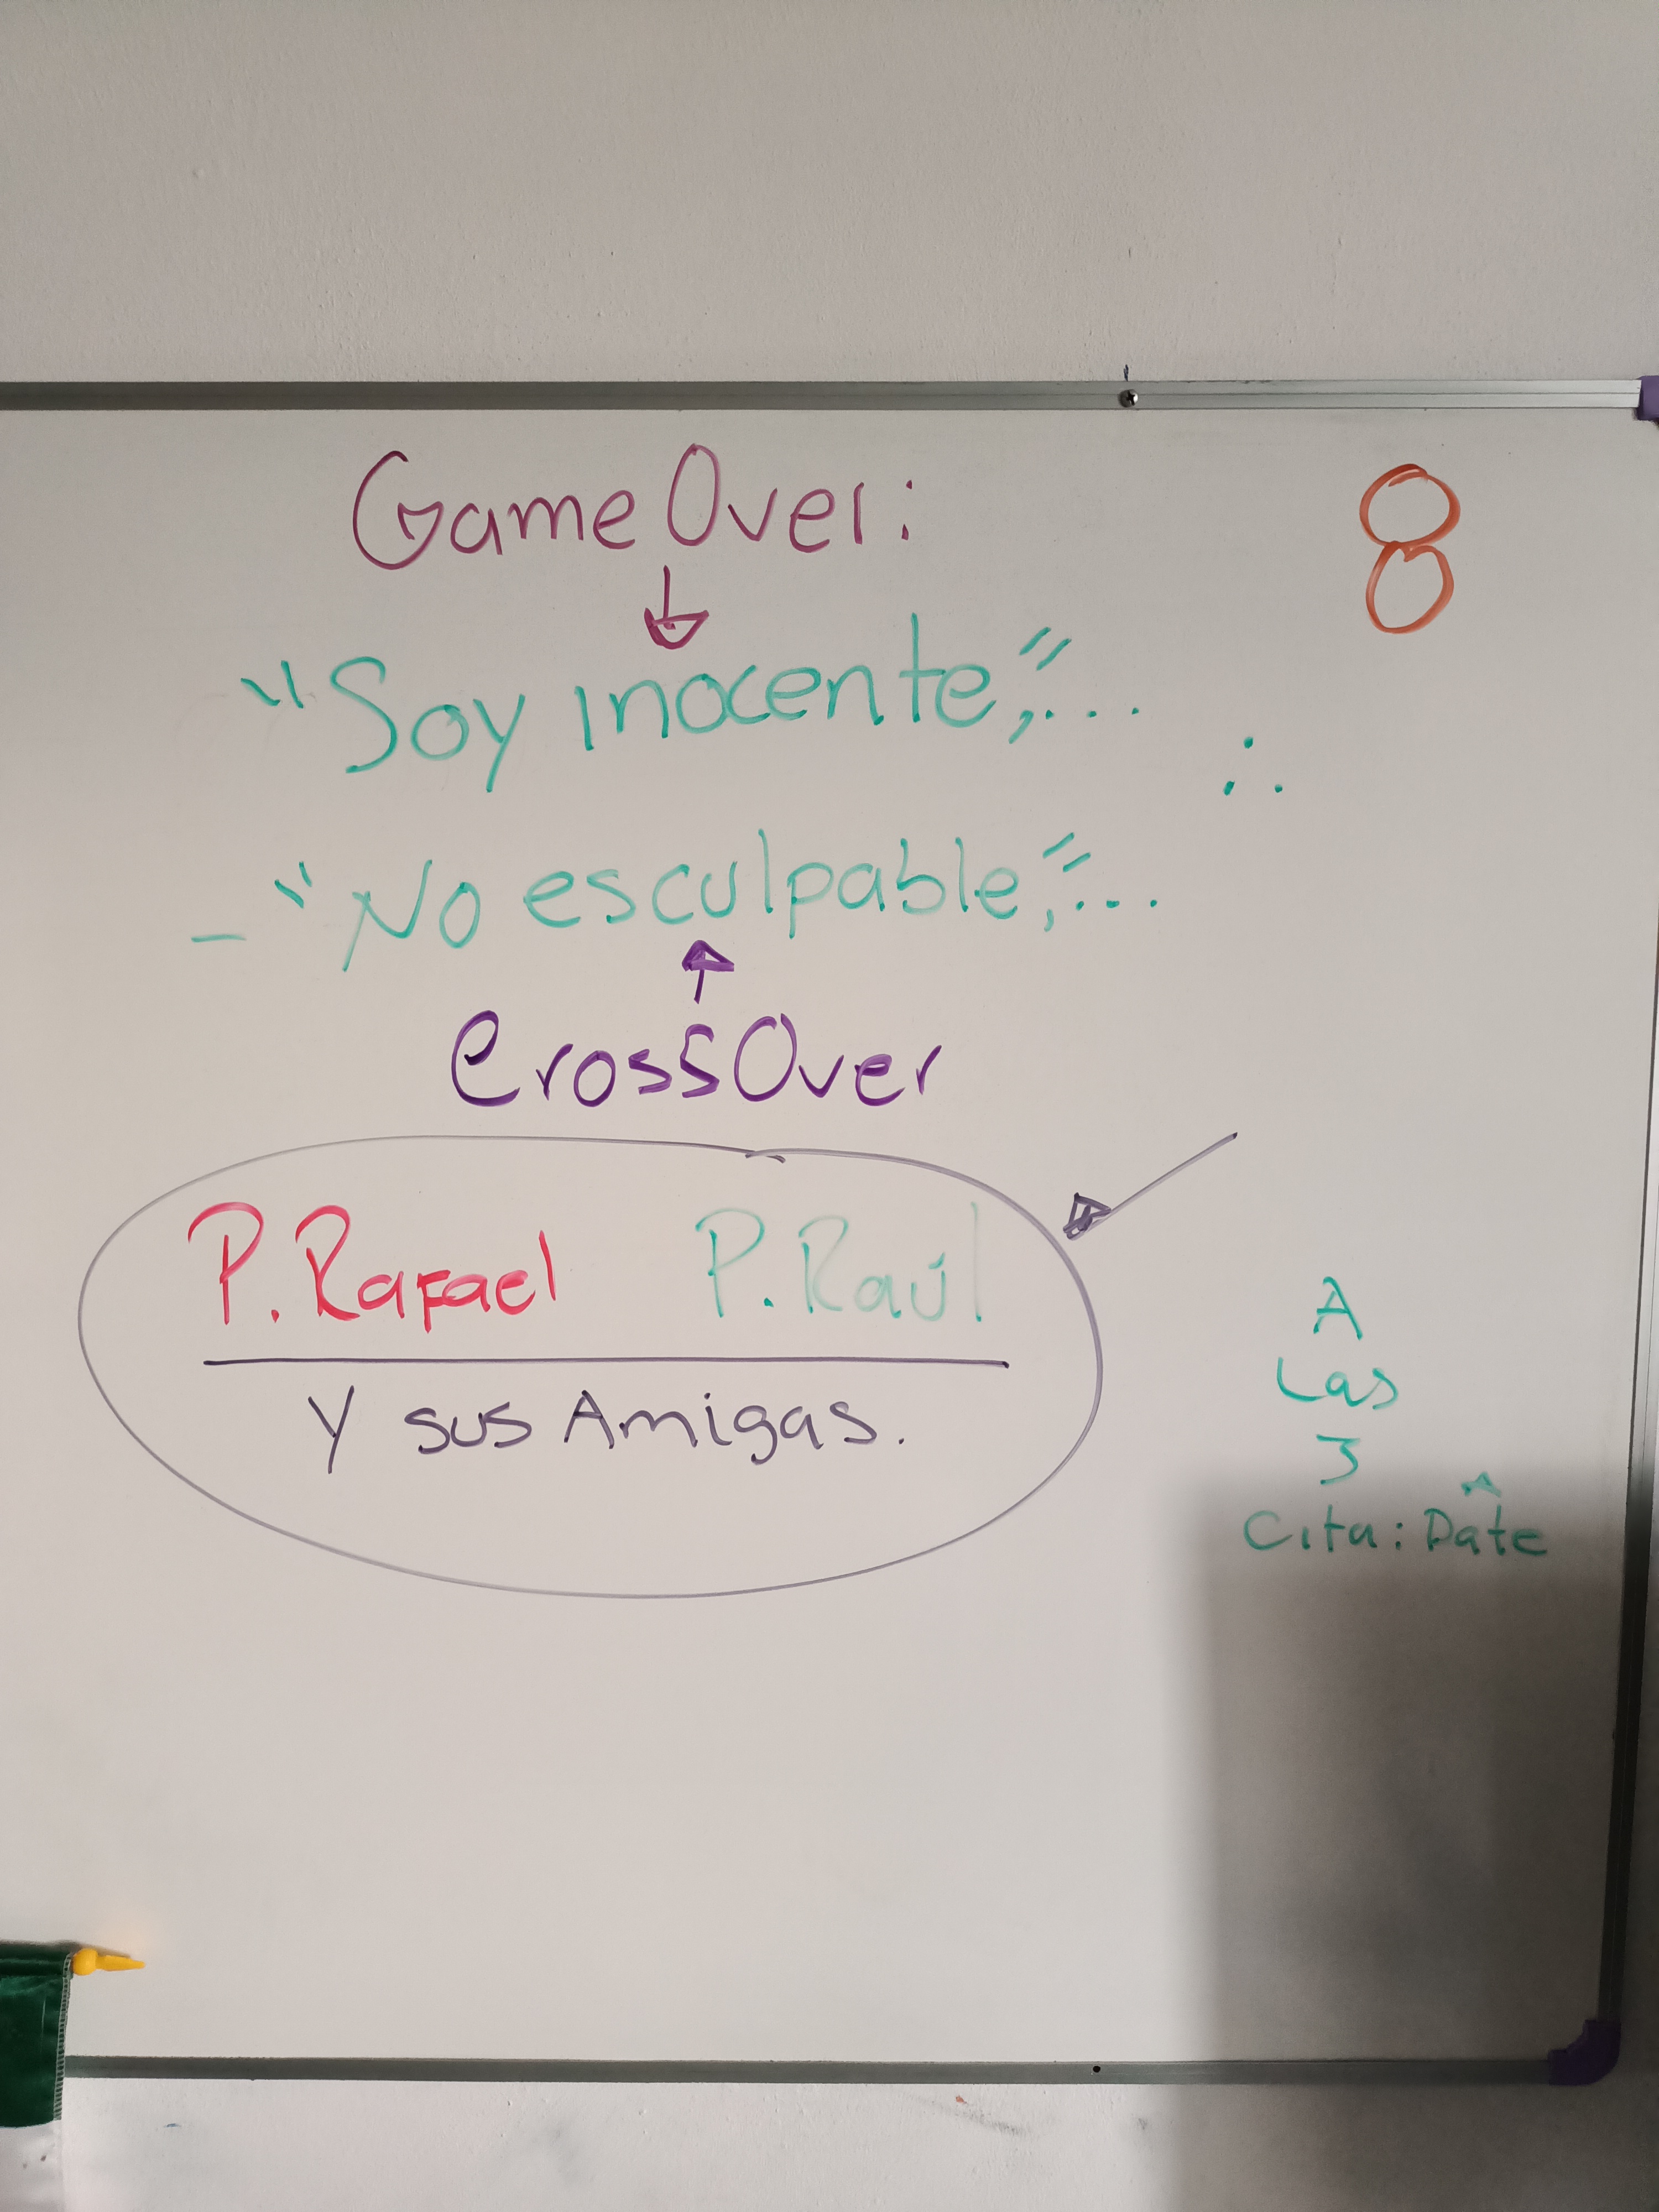 Game Over:
8
"Soy inocente,"...
∴
- "No esculpable,"...
CrossOver
P. Rafael P. Raúl
Y sus Amigas.
A
Las
3
Cita: Date